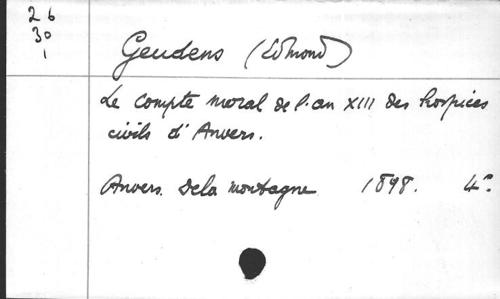 26
30
1
Geudens (Edmond)
Le compte moral de l'an XIII des hospices
civils d'Anvers.
Anvers. Dela montagne 1898. 4°.